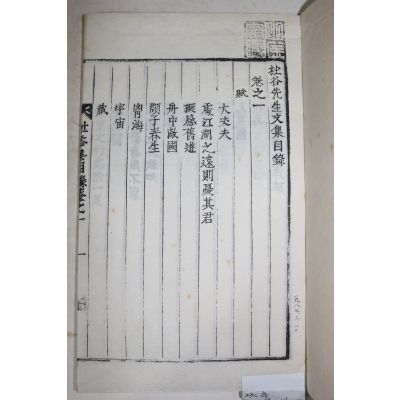 杜谷先生文集目錄
卷之一
賦
大丈夫
處江湖之遠則憂其君
舟中敵國
顏子春生
胷海
宇宙
杜谷集目錄卷之一 一